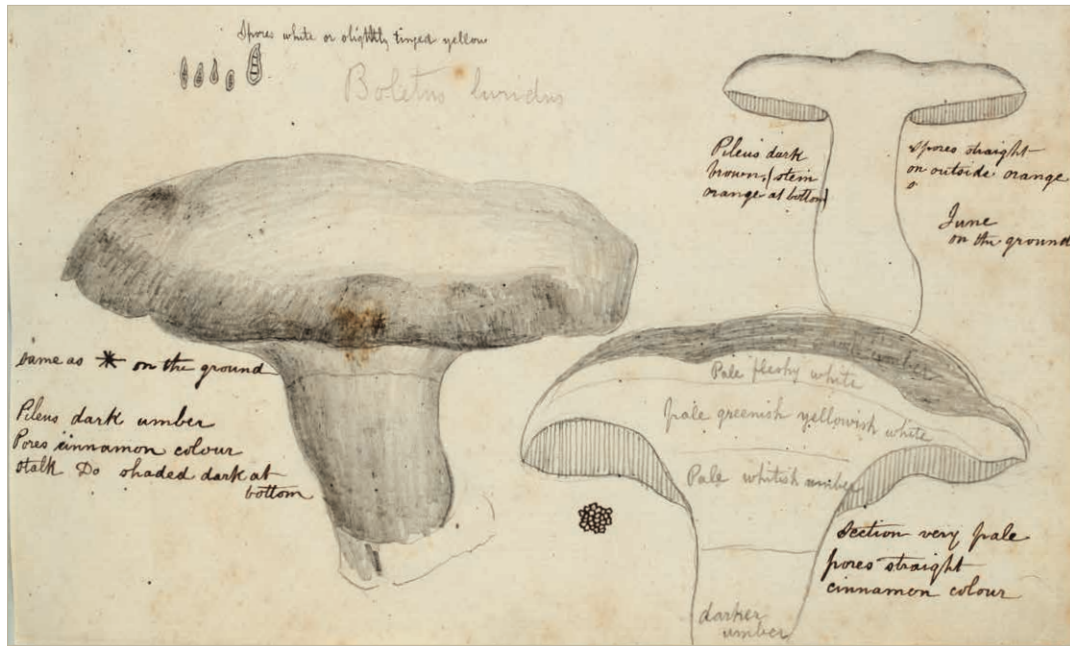 Spores white or slightly tinged yellow
Boletus luridus
Pileus dark
brown, (stem
orange at bottom)
Spores straight
on outside orange
June
on the ground
same as * on the ground
Pileus dark umber
Pores cinnamon colour
Stalk Do shaded dark at
bottom
umber
Pale fleshy white
pale greenish yellowish white
Pale whitish umber
Section very pale
pores straight
cinnamon colour
darker
umber